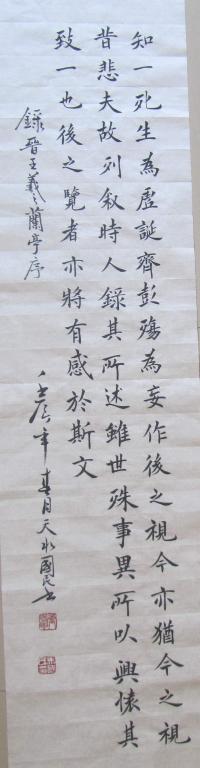 知一死生為虛誕齊彭殤為妄作後之視今亦猶今之視
昔悲夫故列叙時人錄其所述雖世殊事異所以興懷其
致一也後之覽者亦將有感於斯文
錄晉王羲之蘭亭序
年春月天水國民書